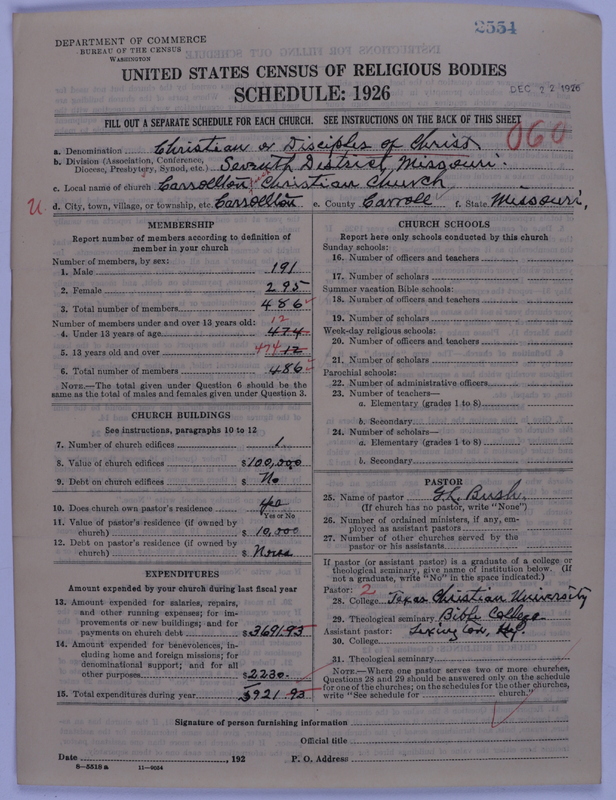 2554
DEPARTMENT OF COMMERCE
BUREAU OF THE CENSUS
WASHINGTON
UNITED STATES CENSUS OF RELIGIOUS BODIES
SCHEDULE: 1926
DEC 22 1926
FILL OUT A SEPARATE SCHEDULE FOR EACH CHURCH. SEE INSTRUCTIONS ON THE BACK OF THIS SHEET
060
a. Denomination Christian or Disciples of Christ
b. Division (Association, Conference, Diocese, Presbytery, Synod, etc.) Seventh District, Missouri.
c. Local name of church Carrollton Christian Church
d. City, town, village, or township, etc. Carrollton e. County Carroll f. State Missouri,
U
MEMBERSHIP
Report number of members according to definition of
member in your church
Number of members, by sex:
1. Male 191
2. Female 295
3. Total number of members 486
Number of members under and over 13 years old: 12
4. Under 13 years of age 474
5. 13 years old and over 474 12
6. Total number of members 486
NOTE.—The total given under Question 6 should be
same as the total of males and females given under Question 3.
CHURCH BUILDINGS
See instructions, paragraphs 10 to 12
7. Number of church edifices 1
8. Value of church edifices $100,000
9. Debt on church edifices $ No
10. Does church own pastor's residence yes
Yes or No
11. Value of pastor's residence (if owned by
church) $ 10,000
12. Debt on pastor's residence (if owned by
church) $ None
EXPENDITURES
Amount expended by your church during last fiscal year
13. Amount expended for salaries, repairs,
and other running expenses; for im-
provements or new buildings; and for
payments on church debt $3691.93
14. Amount expended for benevolences, in-
cluding home and foreign missions; for
denominational support; and for all
other purposes $2230.
15. Total expenditures during year 5921.93
CHURCH SCHOOLS
Report here only schools conducted by this church
Sunday schools:
16. Number of officers and teachers
17. Number of scholars
Summer vacation Bible schools:
18. Number of officers and teachers
19. Number of scholars
Week-day religious schools:
20. Number of officers and teachers
21. Number of scholars
Parochial schools:
22. Number of administrative officers
23. Number of teachers—
a. Elementary (grades 1 to 8)
b. Secondary
24. Number of scholars—
a. Elementary (grades 1 to 8)
b. Secondary
PASTOR
25. Name of pastor G.L. Bush.
(If church has no pastor, write "None")
26. Number of ordained ministers, if any, em-
ployed as assistant pastors
27. Number of other churches served by the
pastor or his assistants
If pastor (or assistant pastor) is a graduate of a college or
theological seminary, give name of institution below. (If
not a graduate, write "No" in the space indicated.)
Pastor: 2
28. College Texas Christian University
29. Theological seminary Bible College
Assistant pastor: Lexington, Ky.
30. College
31. Theological seminary
NOTE.—Where one pastor serves two or more churches,
Questions 28 and 29 should be answered only on the schedule
for one of the churches; on the schedules for the other churches,
write "See schedule for church."
Signature of person furnishing information
Official title
Date , 192 P. O. Address
8—5518 a 11—9034